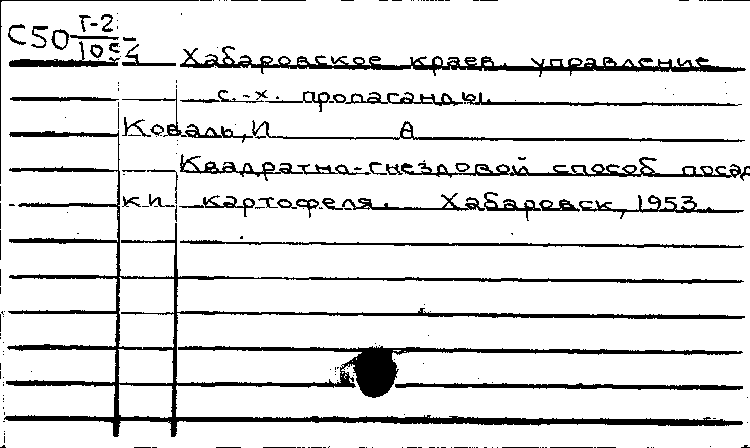 С50 Т-2
1054 Хабаровское краев. управление
с.-х. пропаганды.
Коваль, И А
Квадратно-гнездовой способ посад
ки картофеля. Хабаровск, 1953.